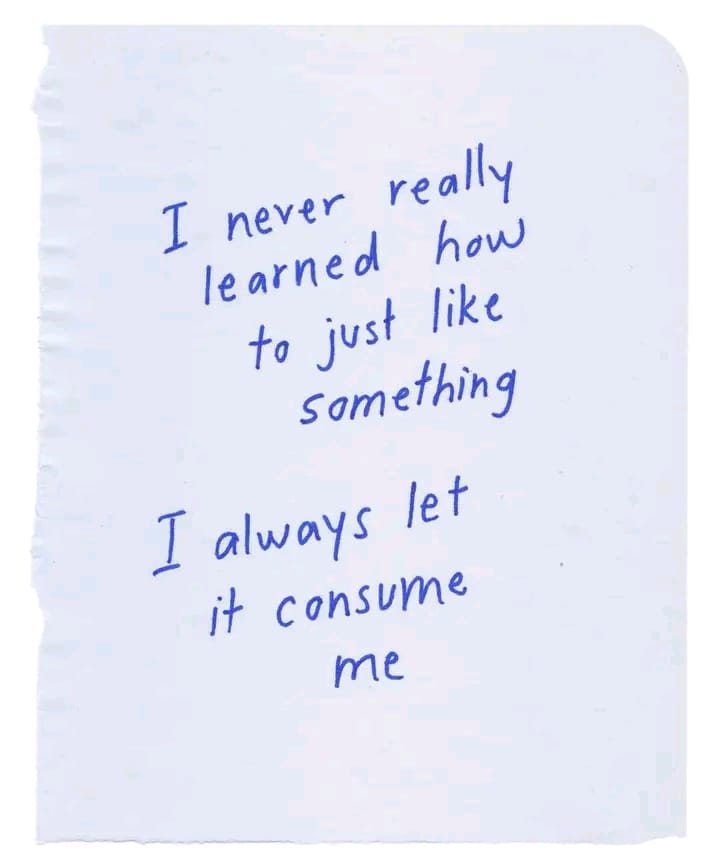 I never really
learned how
to just like
something
I always let
it consume
me